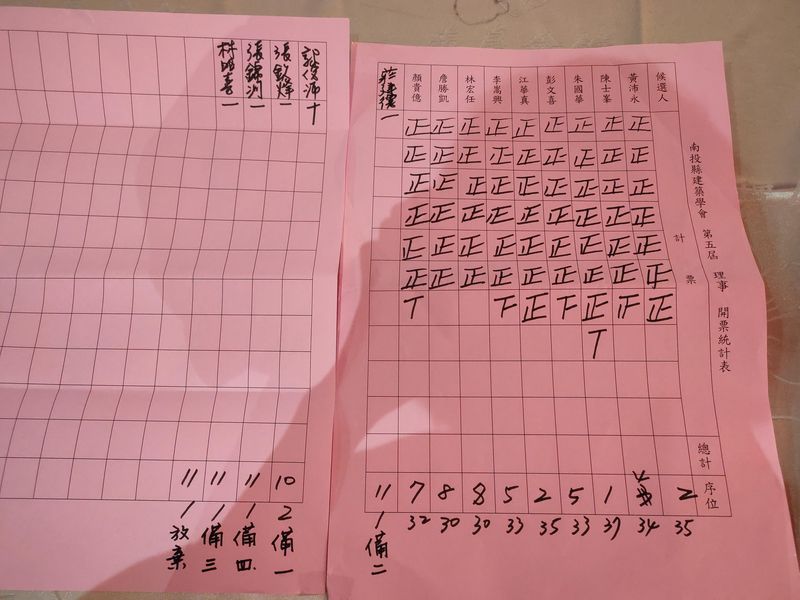 南投縣建築學會 第五屆 理事 開票統計表
候選人 計票 總計 序位
黃沛永 正正正正正正正 2 35
陳士峯 正正正正正正正 34
朱國華 正正正正正正正丅 1 37
彭文喜 正正正正正正下 5 33
江華真 正正正正正正正 2 35
李嵩興 正正正正正正下 5 33
林宏任 正正正正正正 8 30
詹勝凱 正正正正正正 8 30
顏貴億 正正正正正正丅 7 32
一 11 1 備二
十 10 2 備一
張 一 11 1 備四
張錦洲 一 11 1 備三
林明喜 一 11 1 放棄